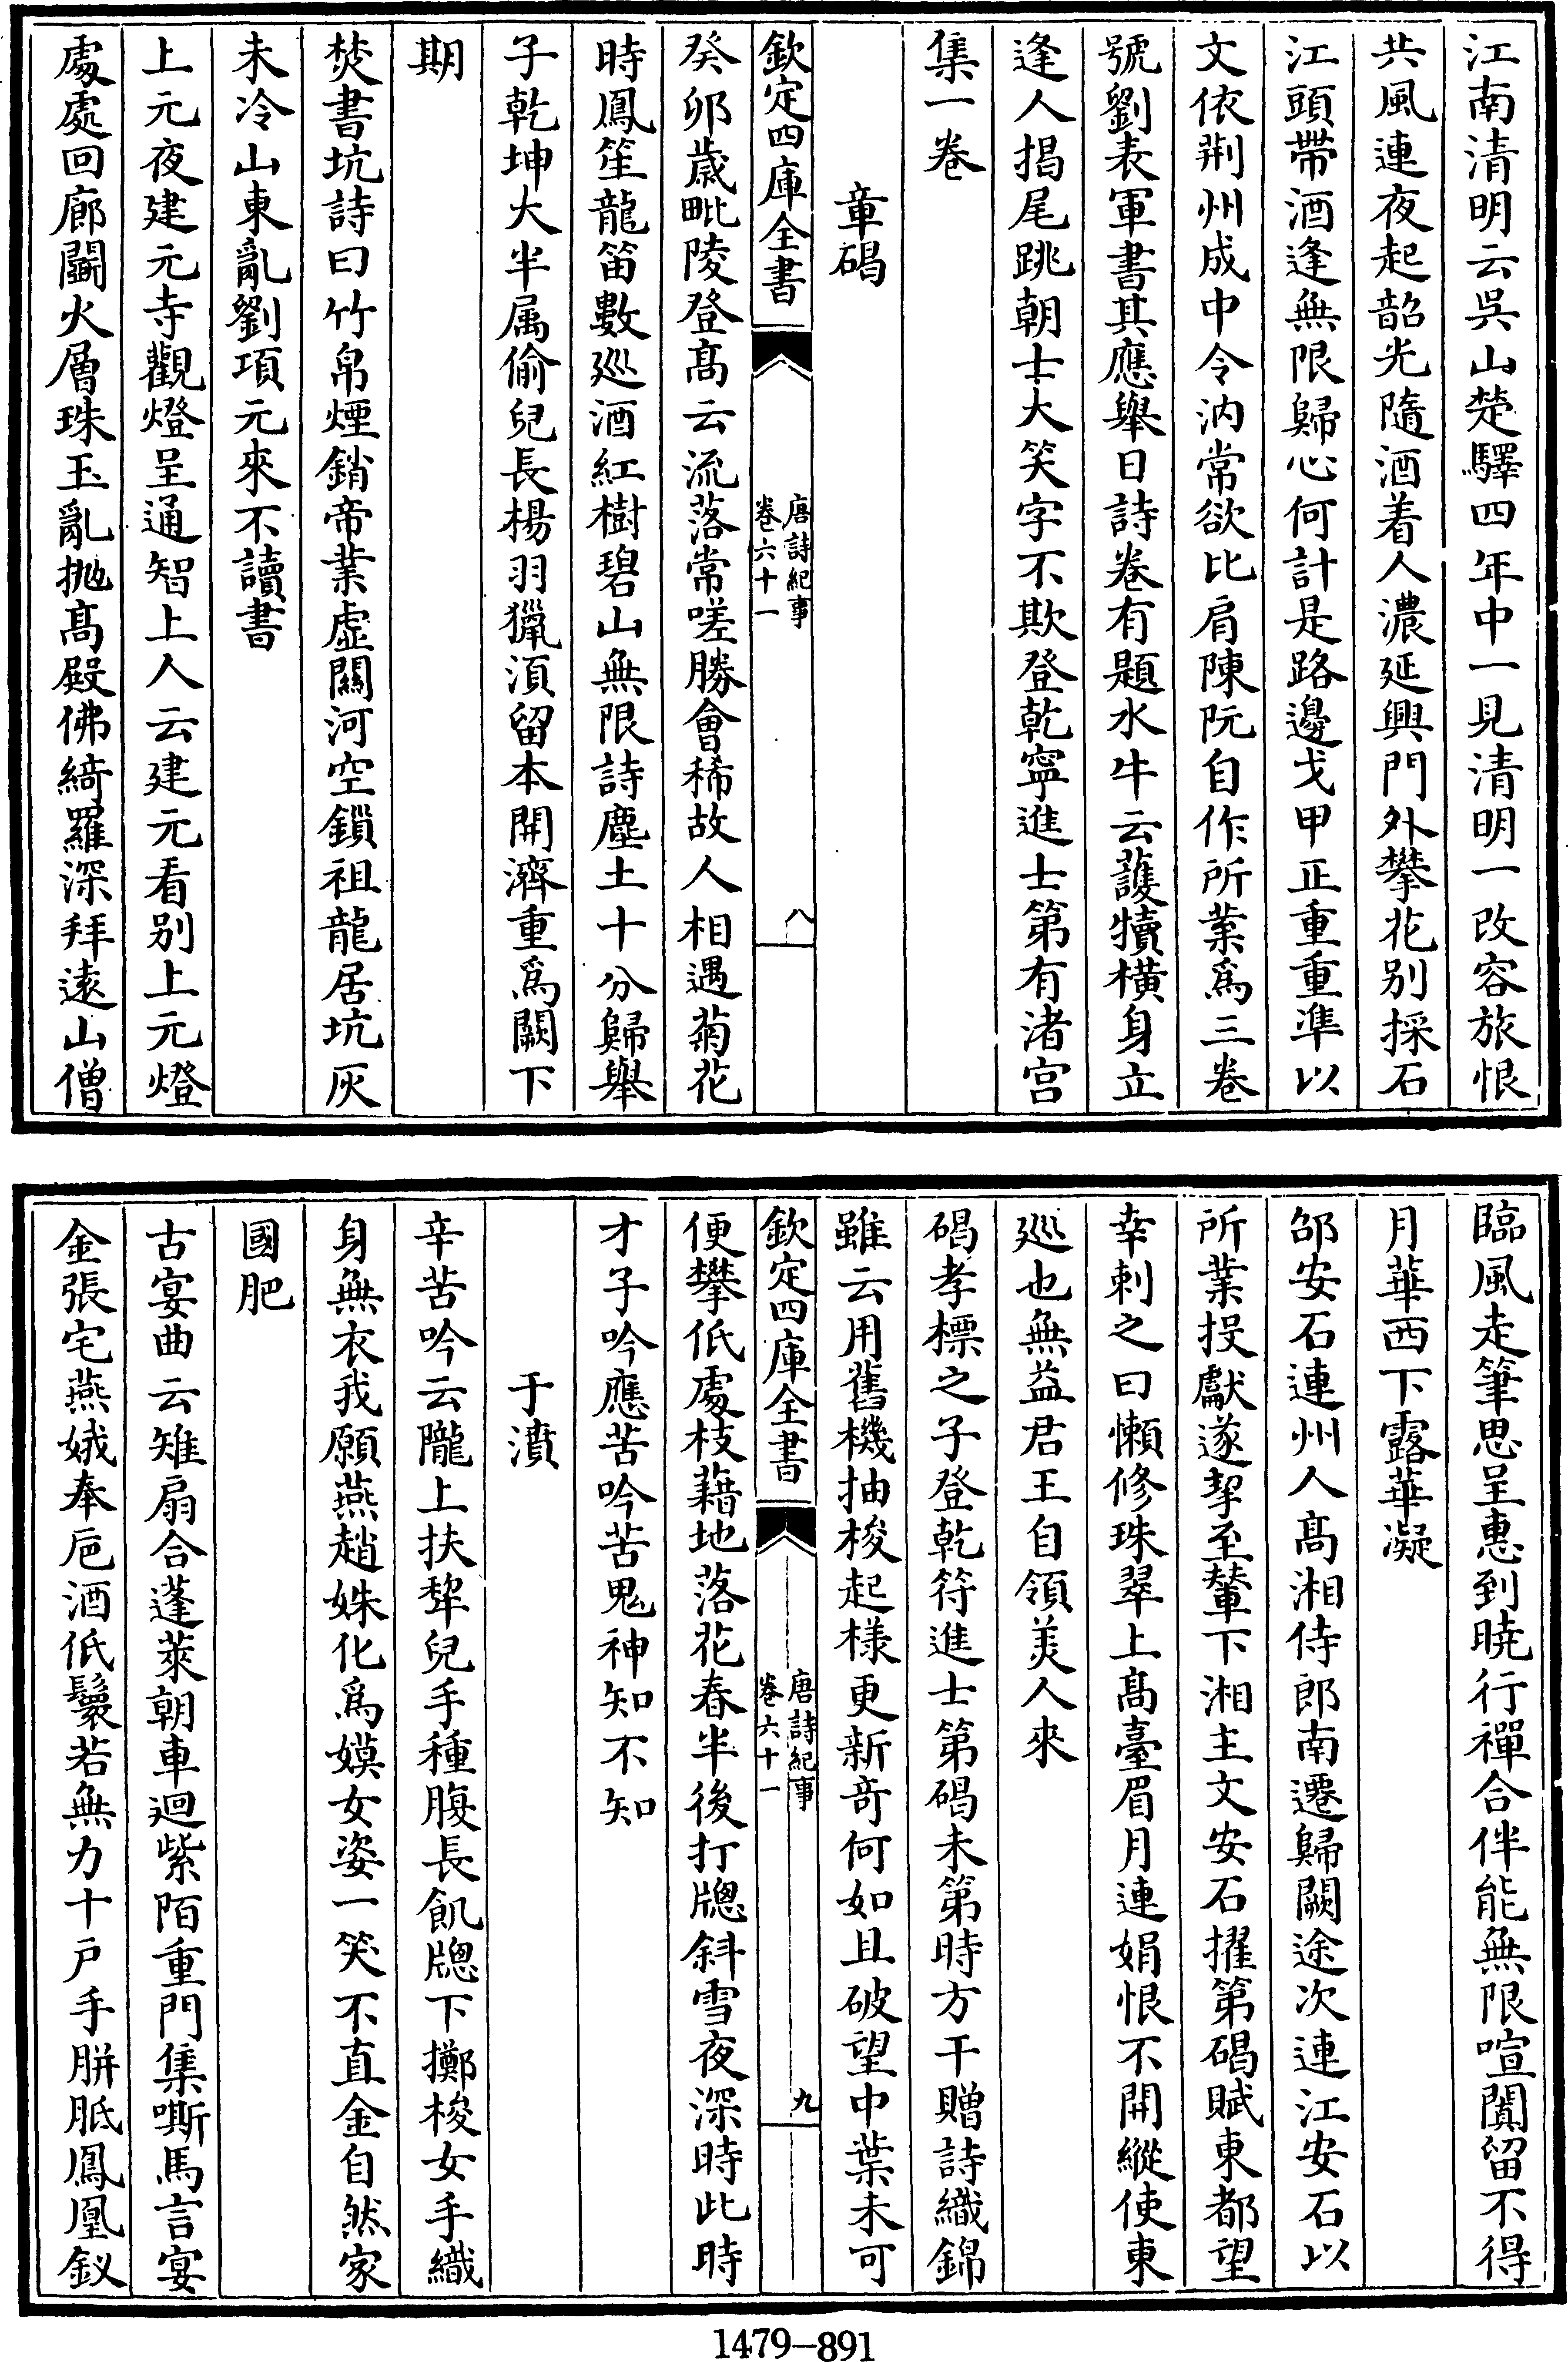 江南清明云吳山楚驛四年中一見清明一改容旅恨
共風連夜起韶光隨酒着人濃延興門外攀花别採石
江頭帶酒逢無限歸心何計是路邊戈甲正重重準以
文依荆州成中令汭常欲比肩陳阮自作所業爲三卷
號劉表軍書其應舉日詩卷有題水牛云護犢橫身立
逢人揭尾跳朝士大笑字不欺登乾寧進士第有渚宫
集一卷
章碣
欽定四庫全書
唐詩紀事
卷六十一
八
癸卯歲毗陵登髙云流落常嗟勝會稀故人相遇菊花
時鳳笙龍笛數巡酒紅樹碧山無限詩塵土十分歸舉
子乾坤大半属偷兒長楊羽獵湏留本開濟重爲闕下
期
焚書坑詩曰竹帛煙銷帝業虛關河空鎻祖龍居坑灰
未冷山東亂劉項元來不讀書
上元夜建元寺觀燈呈通智上人云建元看别上元燈
處處回廊鬭火層珠玉亂抛髙殿佛綺羅深拜逺山僧
臨風走筆思呈惠到曉行禪合伴能無限喧闐留不得
月華西下露華凝
邵安石連州人髙湘侍郎南遷歸闕途次連江安石以
所業投獻遂挈至輦下湘主文安石擢第碣賦東都望
幸刺之曰懶修珠翠上髙臺眉月連娟恨不開縱使東
巡也無益君王自領美人來
碣孝標之子登乾符進士第碣未第時方干贈詩織錦
雖云用舊機抽梭起樣更新竒何如且破望中葉未可
欽定四庫全書
唐詩紀事
卷六十一
九
便攀低處枝藉地落花春半後打牕斜雪夜深時此時
才子吟應苦吟苦鬼神知不知
于濆
辛苦吟云隴上扶犂兒手種腹長飢牕下擲梭女手織
身無衣我願燕趙姝化爲嫫女姿一笑不直金自然家
國肥
古宴曲云雉扇合蓬萊朝車迴紫陌重門集嘶馬言宴
金張宅燕娥奉巵酒低鬟若無力十戸手胼胝鳳凰釵
1479—891